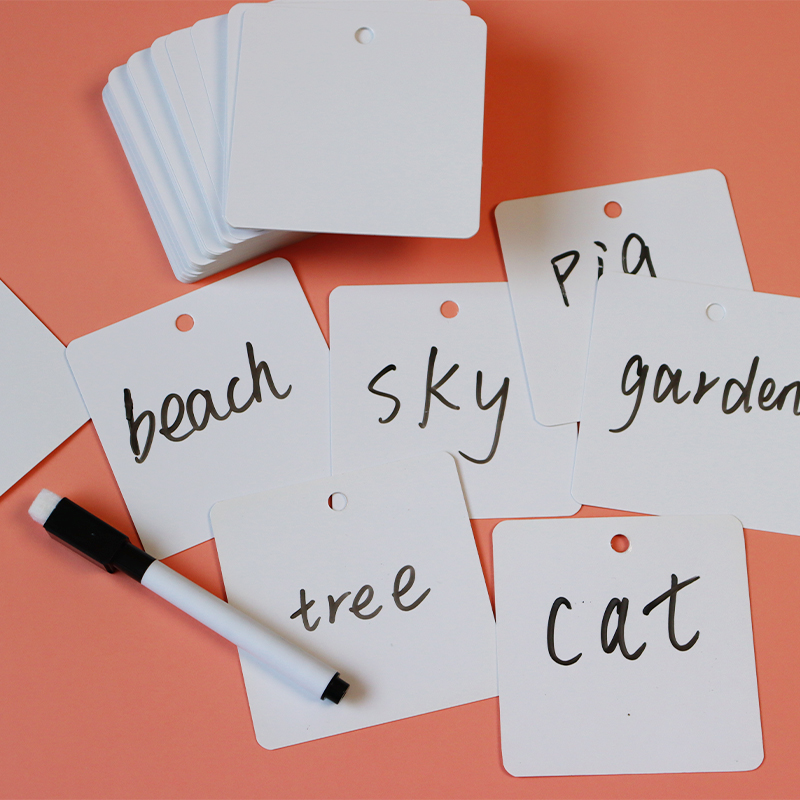 beach
sky
garden
tree
cat